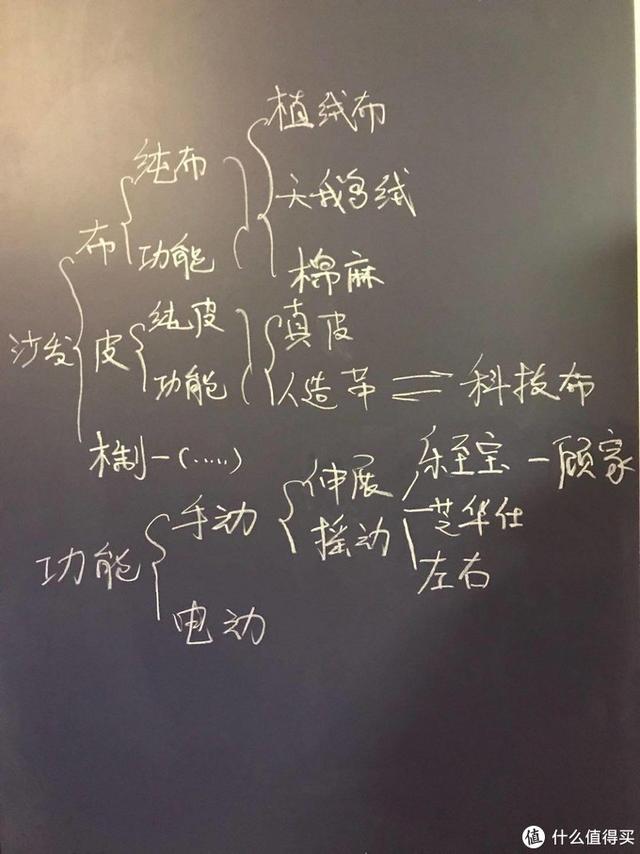 植绒布
纯布
天鹅绒
布
功能
棉麻
纯皮
真皮
沙发
皮
功能
人造革 = 科技布
木制—(……)
乐至宝—顾家
伸展
手动
芝华仕
摇动
功能
左右
电动
值 什么值得买